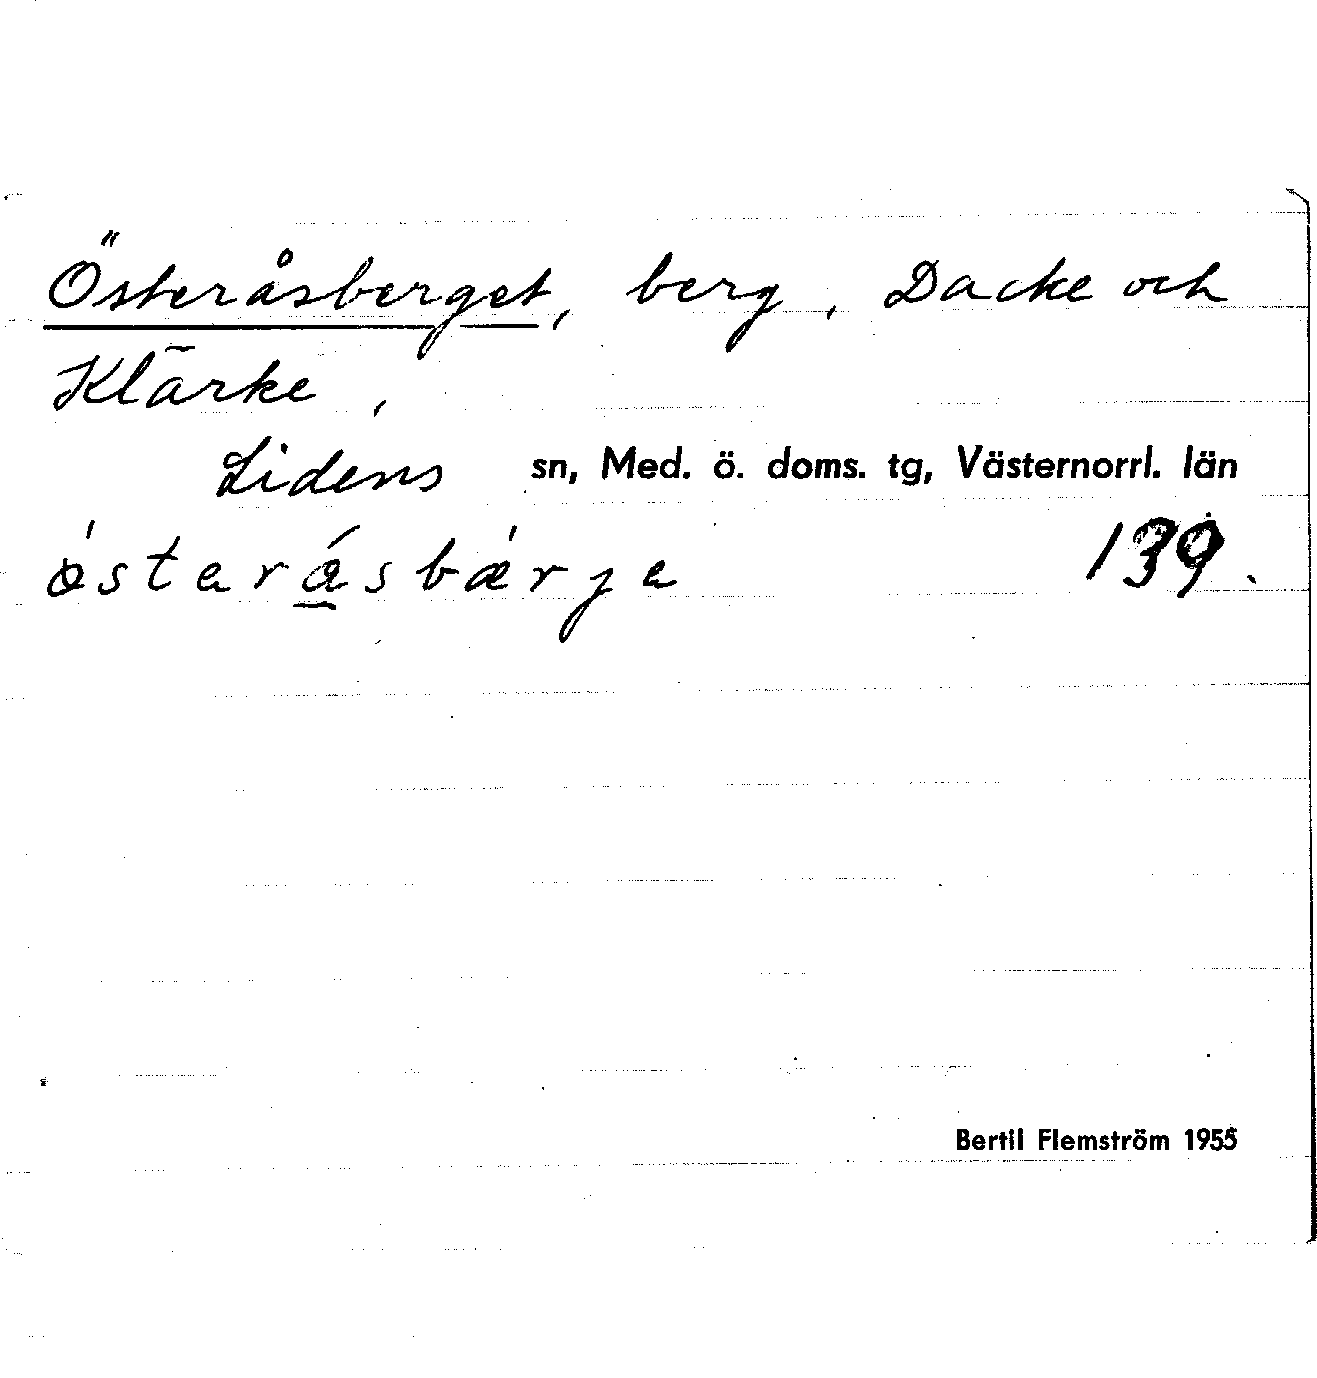 Österåsberget, berg, Dacke och
Klärke,
Lidens sn, Med. ö. doms. tg, Västernorrl. län
139.
Bertil Flemström 1955